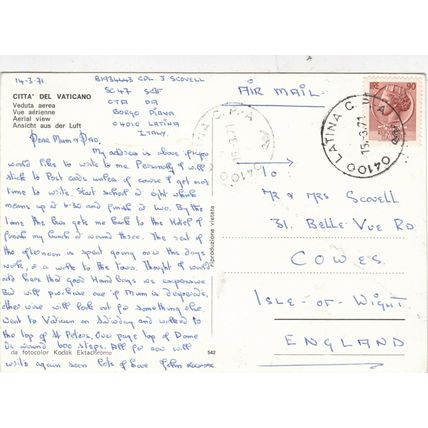 14-3-71.
CITTA' DEL VATICANO
Veduta aerea
Vue aérienne
Aerial view
Ansicht aus der Luft
CPL. J. SCOVELL
SC47
CTA PA
BORGO PIAVE
04010 LATINA
ITALY.
AIR MAIL.
Dear Mum & Dad,
My address is above if you
would like to write to me. Personally I will
stick to Post cards unless of course I get
time to write. Start school at eight which
means up at 6-30 and finish at two. By the
time the bus gets me back to the Hotel I
finish my lunch at around three. The rest of
the afternoon is spent going over the days
work, & a write to the
out here that good Handbags are expensive
But will purchase one if Mum is desperate,
other wise will look out for something else
Went to Vatican on Saturday and walked to
the top of St Peters, Our page top of Dome
is around 600 steps. All for now will
write again soon lots of love John
To
MR & MRS SCOVELL
31. BELLE VUE RD
COWES
ISLE-OF-WIGHT.
ENGLAND
04100 LATINA
15-3-71
04100
15-3-71
90
riproduzione vietata
da fotocolor Kodak Ektachrome
542